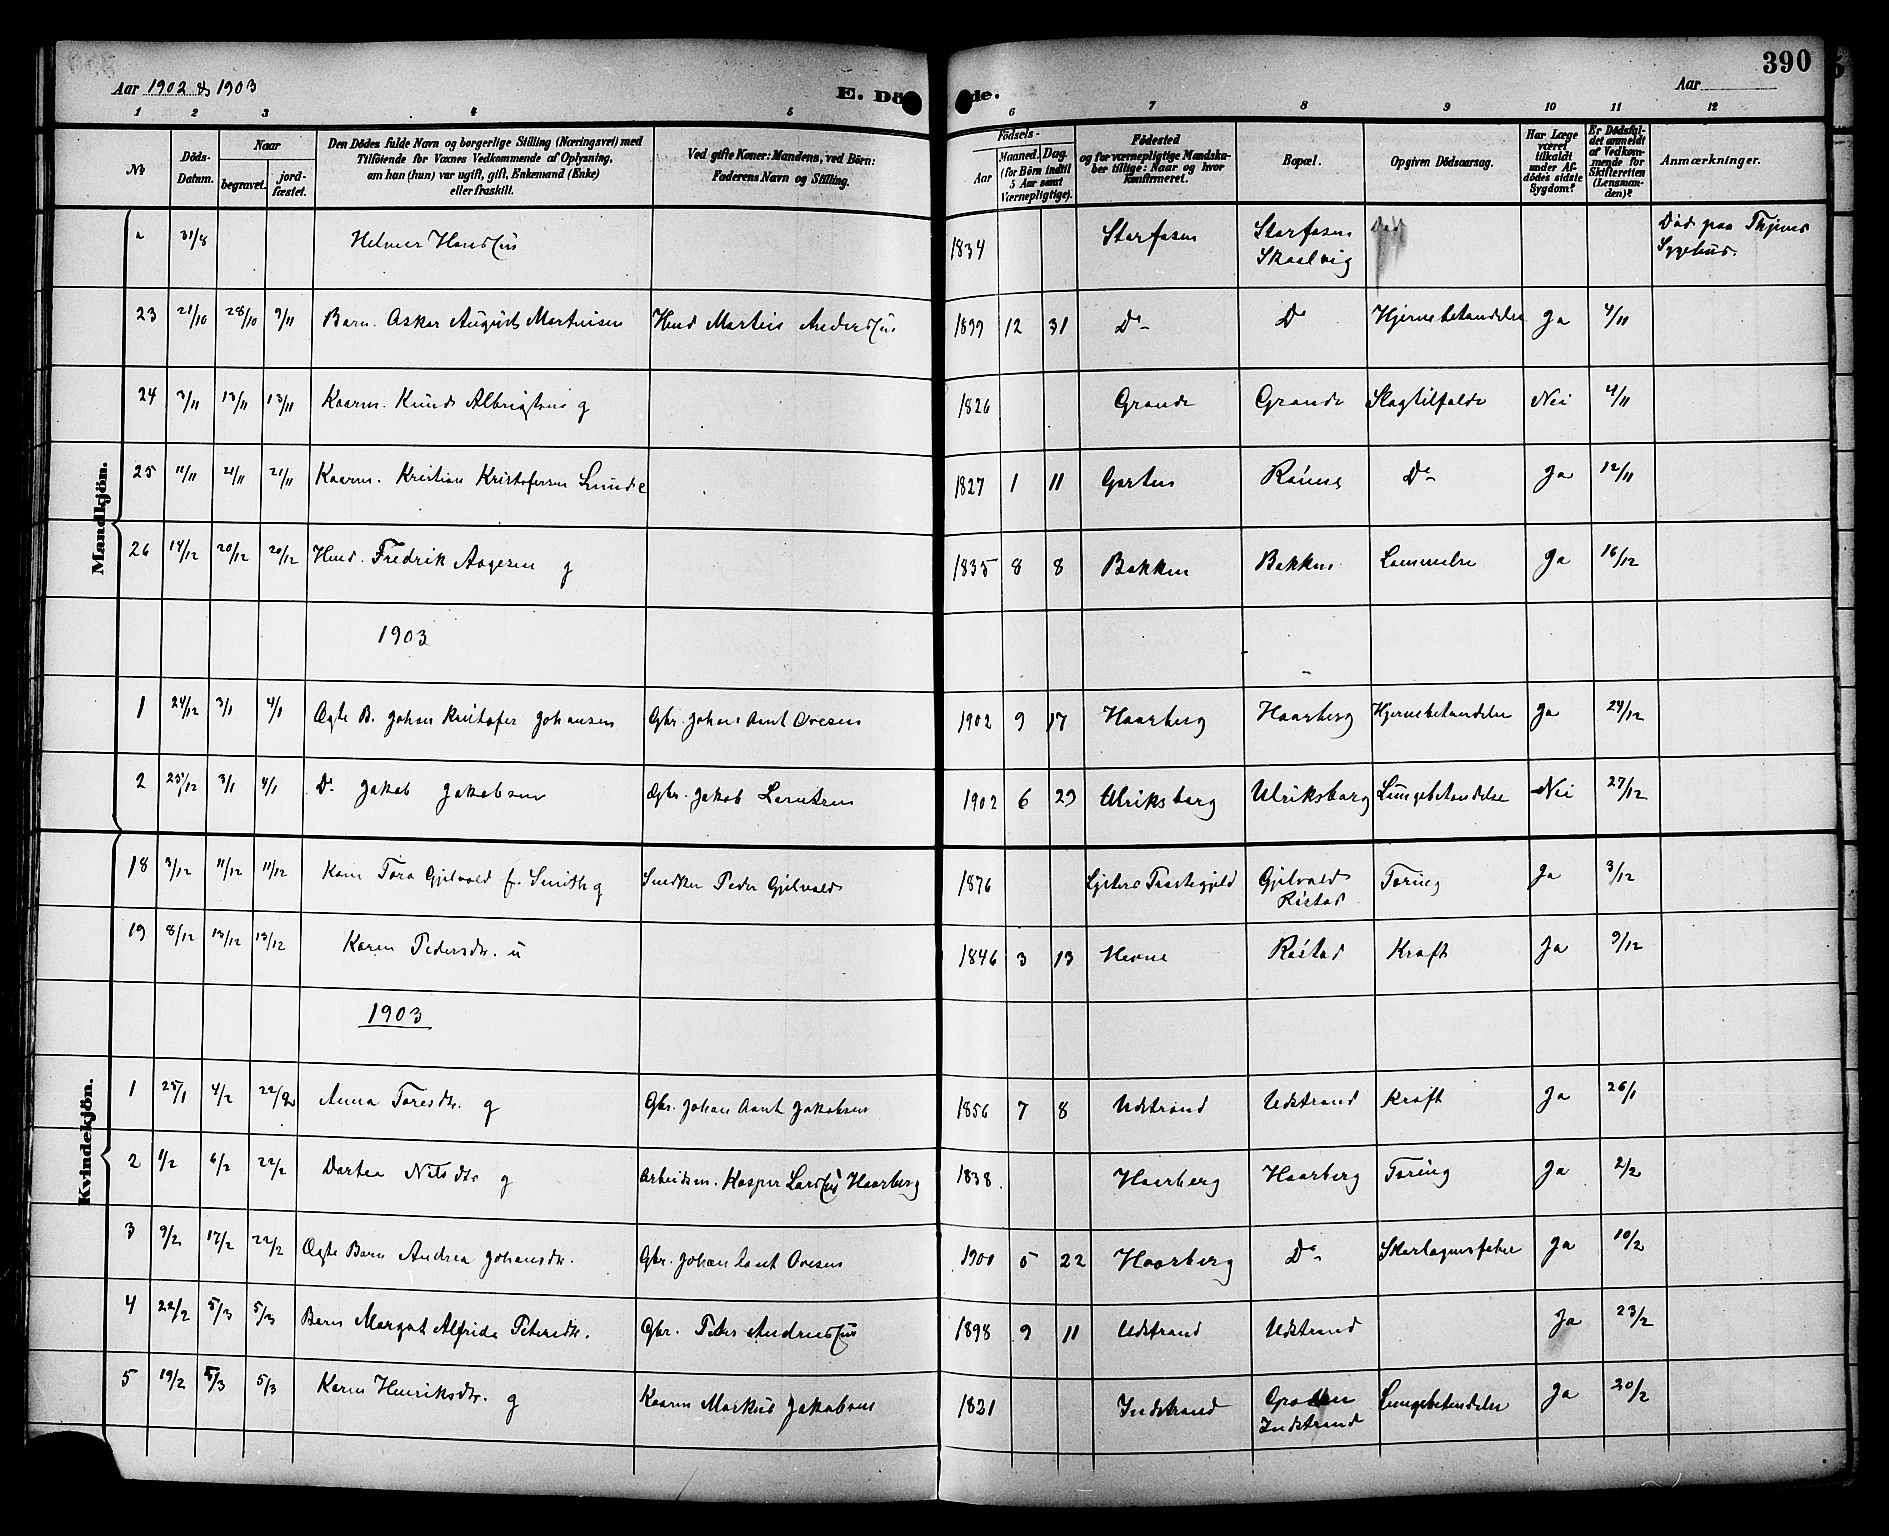 390
Aar 1902 & 1903 E. Döde. Aar
1 2 3 4 5 6 7 8 9 10 11 12
No Döds-Datum. Naar begravet. jordfæstet. Den Dödes fulde Navn og borgerlige Stilling (Næringsvei) med Tilföiende for Voxnes Vedkommende af Oplysning, om han (hun) var ugift, gift, Enkemand (Enke) eller fraskilt. Ved gifte Koner: Mandens, ved Börn: Faderens Navn og Stilling. Födsels- Aar Maaned. Dag. (for Börn indtil 5 Aar samt Værnepligtige). Födested og for værnepligtige Mandskaber tillige: Naar og hvor Konfirmeret. Bopæl. Opgiven Dödsaarsag. Har Læge været tilkaldt under Afdödes sidste Sygdom? Er Dödsfaldet anmeldt af Vedkommende for Skifteretten (Lensmanden)? Anmærkninger.
Mandkjön.
a 31/8 Helmer 1834 Storfosen Storfosen Skaelvig Död paa Sygehus.
23 21/10 28/10 9/11 Barn. Oskar August Martinsen Hmd Martin 1899 12 31 Do Do Hjernebetændelse Ja 4/11
24 3/11 13/11 13/11 Kaarm. Albrigtsen g 1826 Grande Grande Slagtilfælde Nei 4/11
25 11/11 21/11 21/11 Kaarm. Kristian Kristofersen 1827 1 11 Garten Do Ja 12/11
26 14/12 20/12 20/12 Hmd. Fredrik Aagesen g 1835 8 8 Bakken Bakken Lammelse Ja 16/12
1903
1 24/12 3/1 4/1 Ægte B. Johan Kristofer Johansen Gbr. Johan Arnt Ovesen 1902 9 17 Haarberg Haarberg Hjernebetændelse Ja 24/12
2 25/12 3/1 4/1 Do Jakob Jakobsen Gbr. Jakob Larentsen 1902 6 29 Ulriksborg Ulriksborg Lungebetændelse Nei 27/12
Kvindekjön.
18 3/12 11/12 11/12 Kone Tora Gjelvold f. Smith g Snedker Peder Gjelvold 1876 Gjelvold Röstad Tæring Ja 3/12
19 8/12 13/12 13/12 Karen Pedersdr. u 1846 3 13 Hevne Röstad Kræft Ja 9/12
1903
1 25/1 4/2 22/2 Anna Toresdr. g Gbr. Johan Arnt Jakobsen 1856 7 8 Udstrand Udstrand Kræft Ja 26/1
2 1/2 6/2 22/2 Dortea Nilsdtr g Arbeidsm. Kasper Haarberg 1838 Haarberg Haarberg Tæring Ja 2/2
3 9/2 17/2 22/2 Ægte Barn Andrea Johansdr. Gbr. Johan Arnt Ovesen 1900 5 22 Haarberg Do Skarlagensfeber Ja 10/2
4 22/2 5/3 5/3 Barn Margot Alfrida Petersdr. Gbr. Peter 1898 9 11 Udstrand Udstrand Ja 23/2
5 19/2 5/3 5/3 Karen Henriksdr. g Kaarm Markus Jakobsen 1821 Indstrand Indstrand Lungebetændelse Ja 20/2